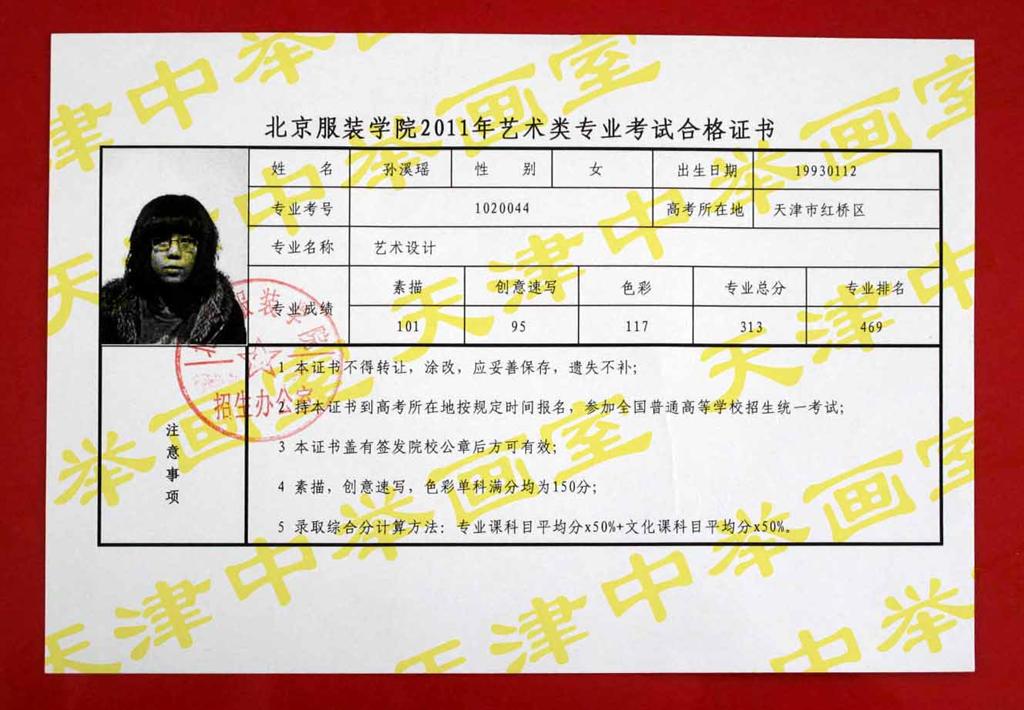 北京服装学院2011年艺术类专业考试合格证书
姓 名 孙溪瑶 性 别 女 出生日期 19930112
专业考号 1020044 高考所在地 天津市红桥区
专业名称 艺术设计
专业成绩 素描 创意速写 色彩 专业总分 专业排名
101 95 117 313 469
注意事项
1 本证书不得转让，涂改，应妥善保存，遗失不补；
2 持本证书到高考所在地按规定时间报名，参加全国普通高等学校招生统一考试；
3 本证书盖有签发院校公章后方可有效；
4 素描，创意速写，色彩单科满分均为150分；
5 录取综合分计算方法：专业课科目平均分x50%+文化课科目平均分x50%。
招生办公室
天津中举画室
天津中举画室
天津中举画室
天津中举画室